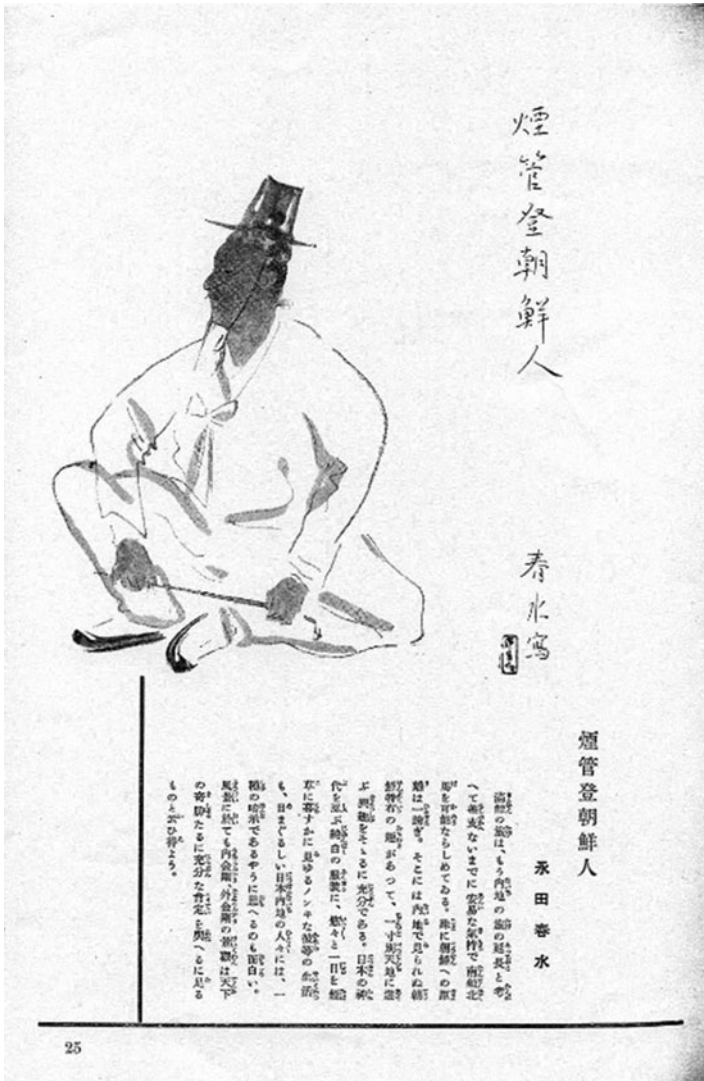 煙管登朝鮮人
春水寫
煙管登朝鮮人
永田春水
満鮮の旅は、もう内地の旅の延長と考
へて差支ないまでに安易な気持で南船北
馬を可能ならしめてゐる。殊に朝鮮への渡
航は一跨ぎ。そこには内地で見られぬ朝
鮮特有の趣があつて、一寸別天地に遊
ぶ興趣をそゝるに充分である。日本の神
代を偲ぶ純白の服装に、悠々と一日を煙
草に暮すかに見ゆるノンキな彼等の生活
も、目まぐるしい日本内地の人々には、一
種の暗示であるやうに思へるのも面白い。
風景に於ても内金剛、外金剛の景観は天下
の奇勝たるに充分な肯定を与へるに足る
ものと云ひ得よう。
25